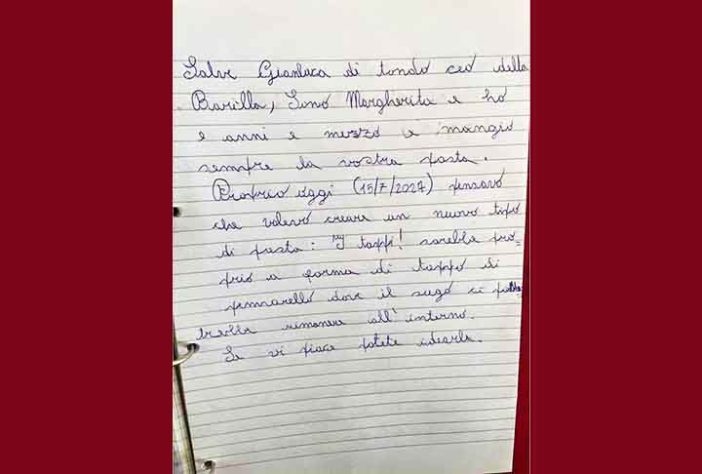 Salve Gianluca di tondo ceo della
Barilla, Sono Margherita e ho
e anni e mezzo e mangio
sempre la vostra pasta.
Proprio oggi (15/7/2024) pensavo
che volevo creare un nuovo tipo
di pasta: "I tappi! sarebba pro-
prio a forma di tappo di
pennarello dove il sugo ci
trebba rimanere all'interno.
Se vi piace potete idearla.